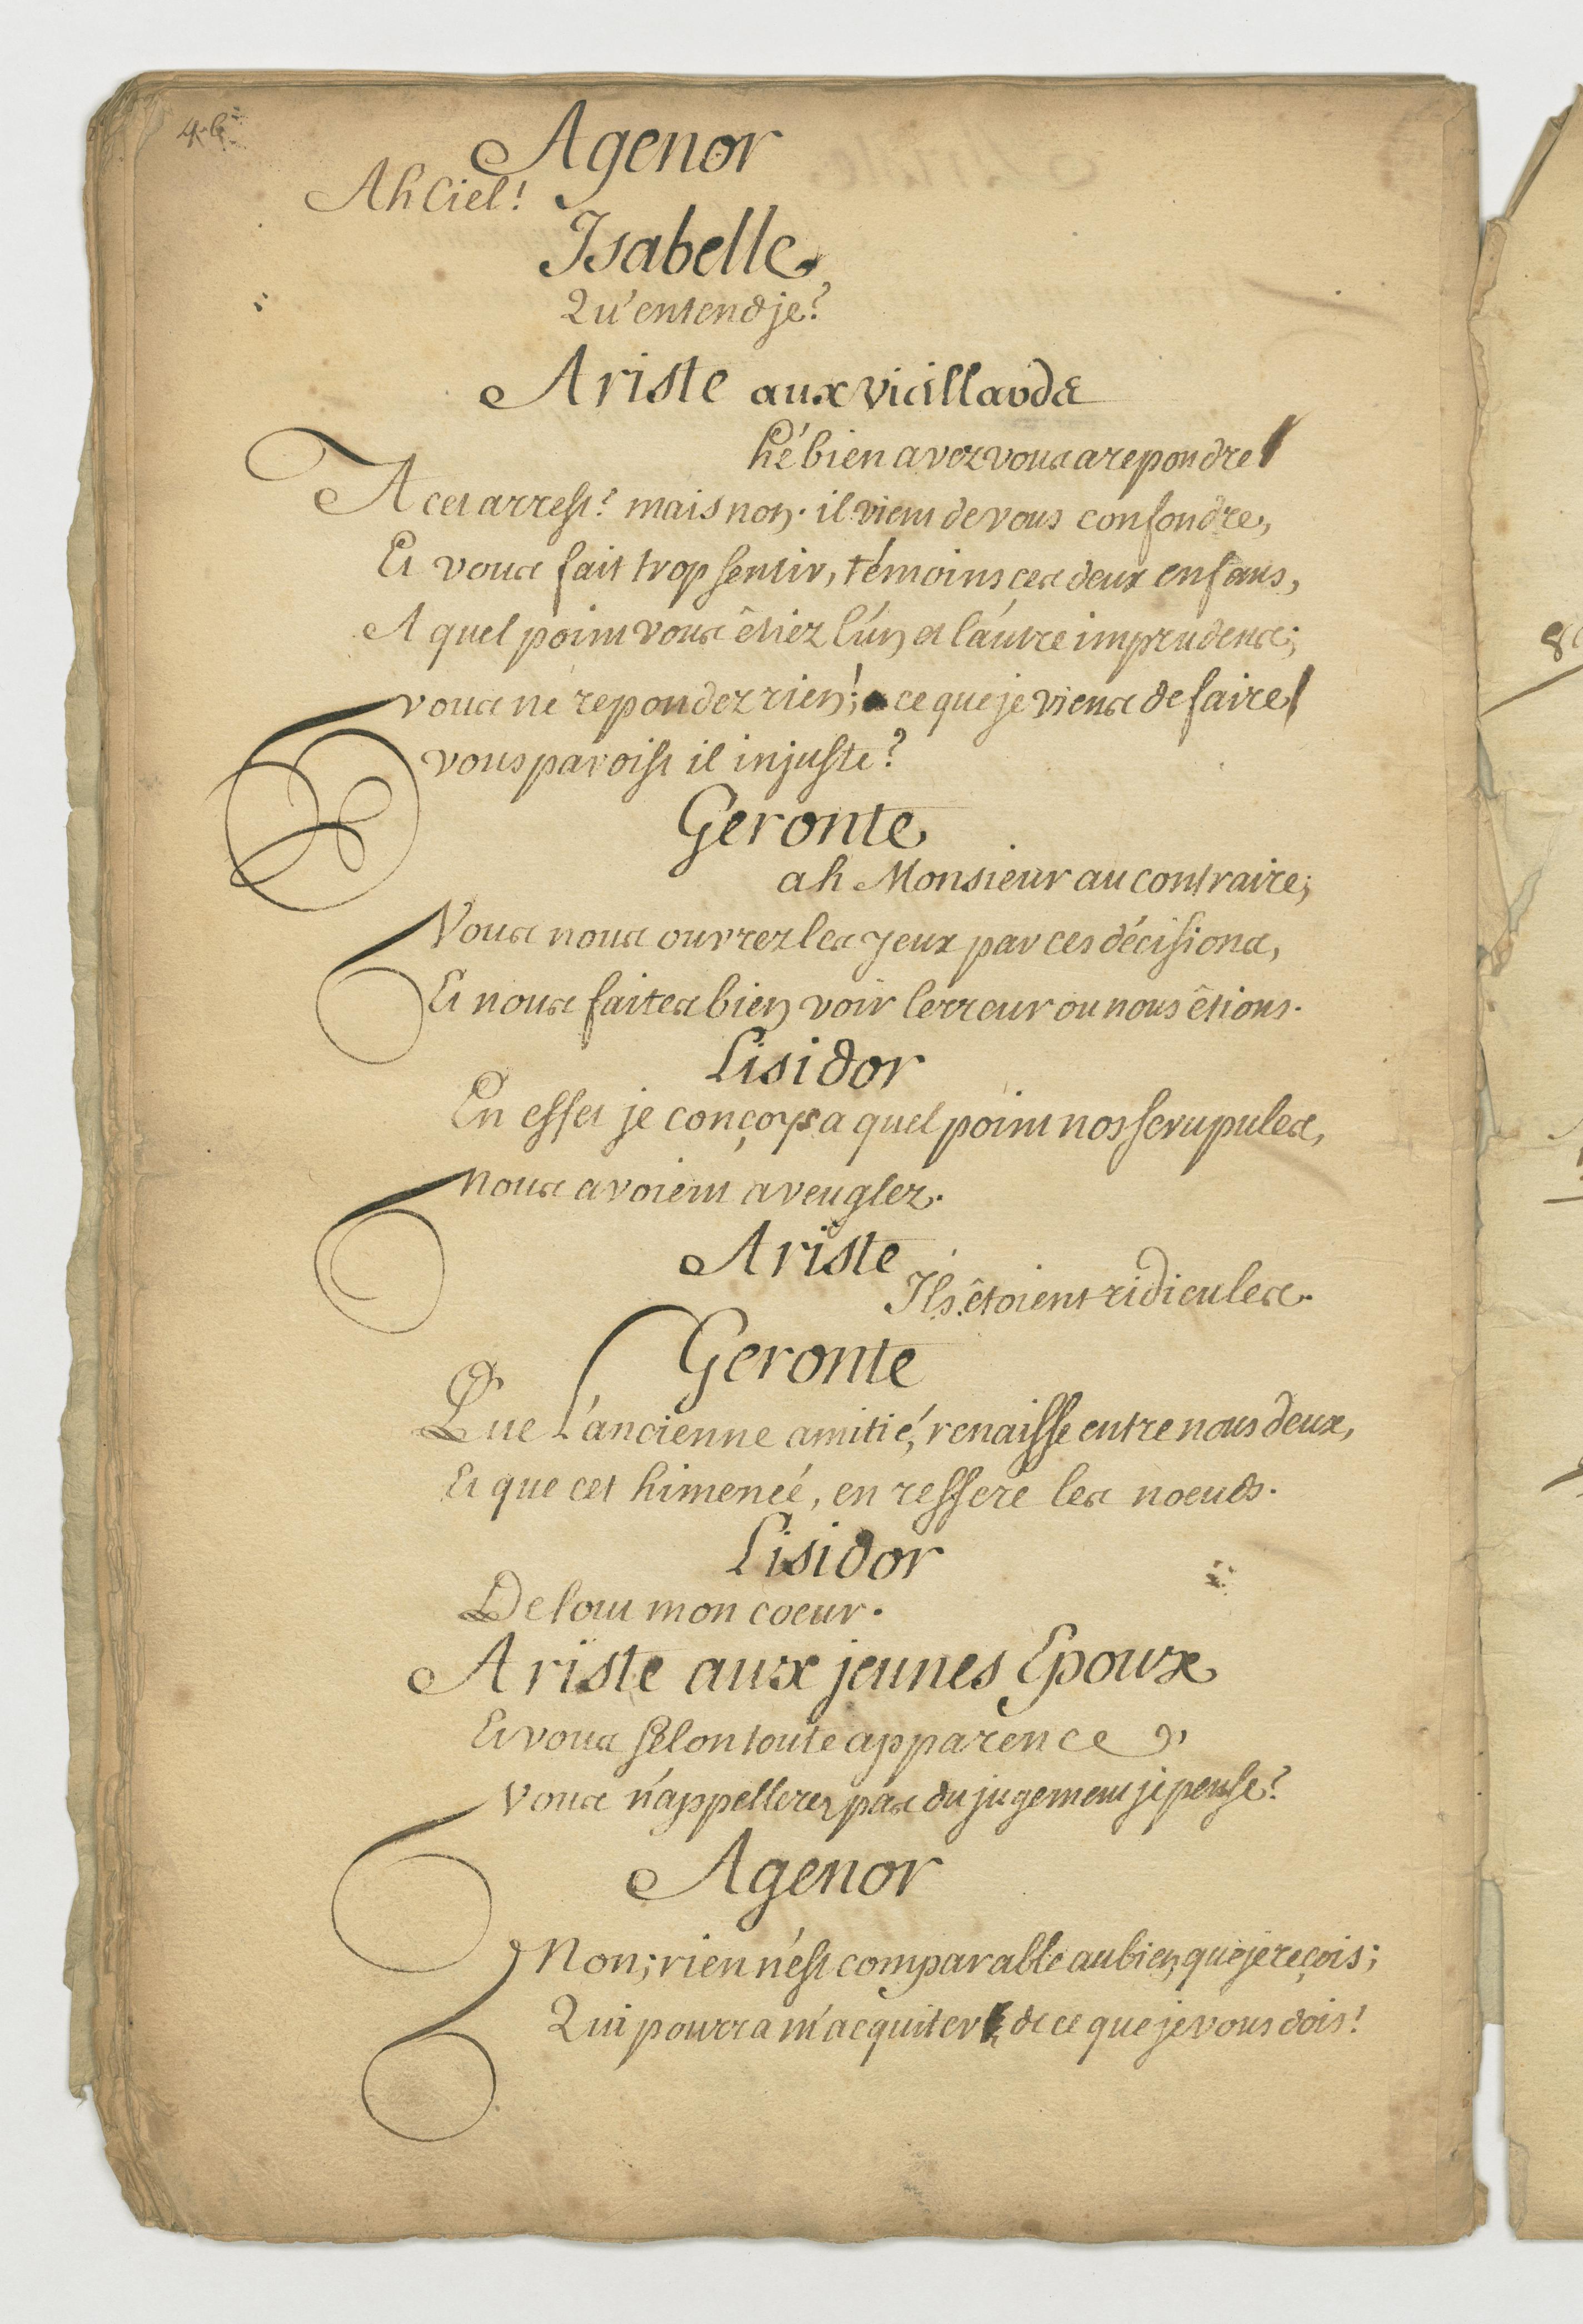 46
Agenor
Ah Ciel!
Isabelle
Qu'entend je?
Ariste aux vieillards
hé bien avez vous a repondre
A cet arrest? mais non. il vient de vous confondre,
Et vous fait trop sentir, témoins ces deux enfans,
A quel point vous êtiez l'un et l'autre imprudens;
vous ne repondez rien! ce que je viens de faire
vous paroist il injuste?
Geronte
ah Monsieur au contraire;
Vous nous ouvrez les yeux par ces décisions,
Et nous faites bien voir lerreur ou nous êtions.
Lisidor
En effet je conçoys a quel point nos scrupules,
Nous avoient aveuglez.
Ariste
Ils êtoient ridicules.
Geronte
Que L'ancienne amitié, renaisse entre nous deux,
Et que cet himeneé, en ressere les noeuds.
Lisidor
De tout mon coeur.
Ariste aux jeunes Epoux
Et vous selon toute apparence
Vous n'appellerez pas du jugement je pense?
Agenor
Non; rien n'est comparable au bien que je reçois;
Qui pourra m'acquiter de ce que je vous dois!